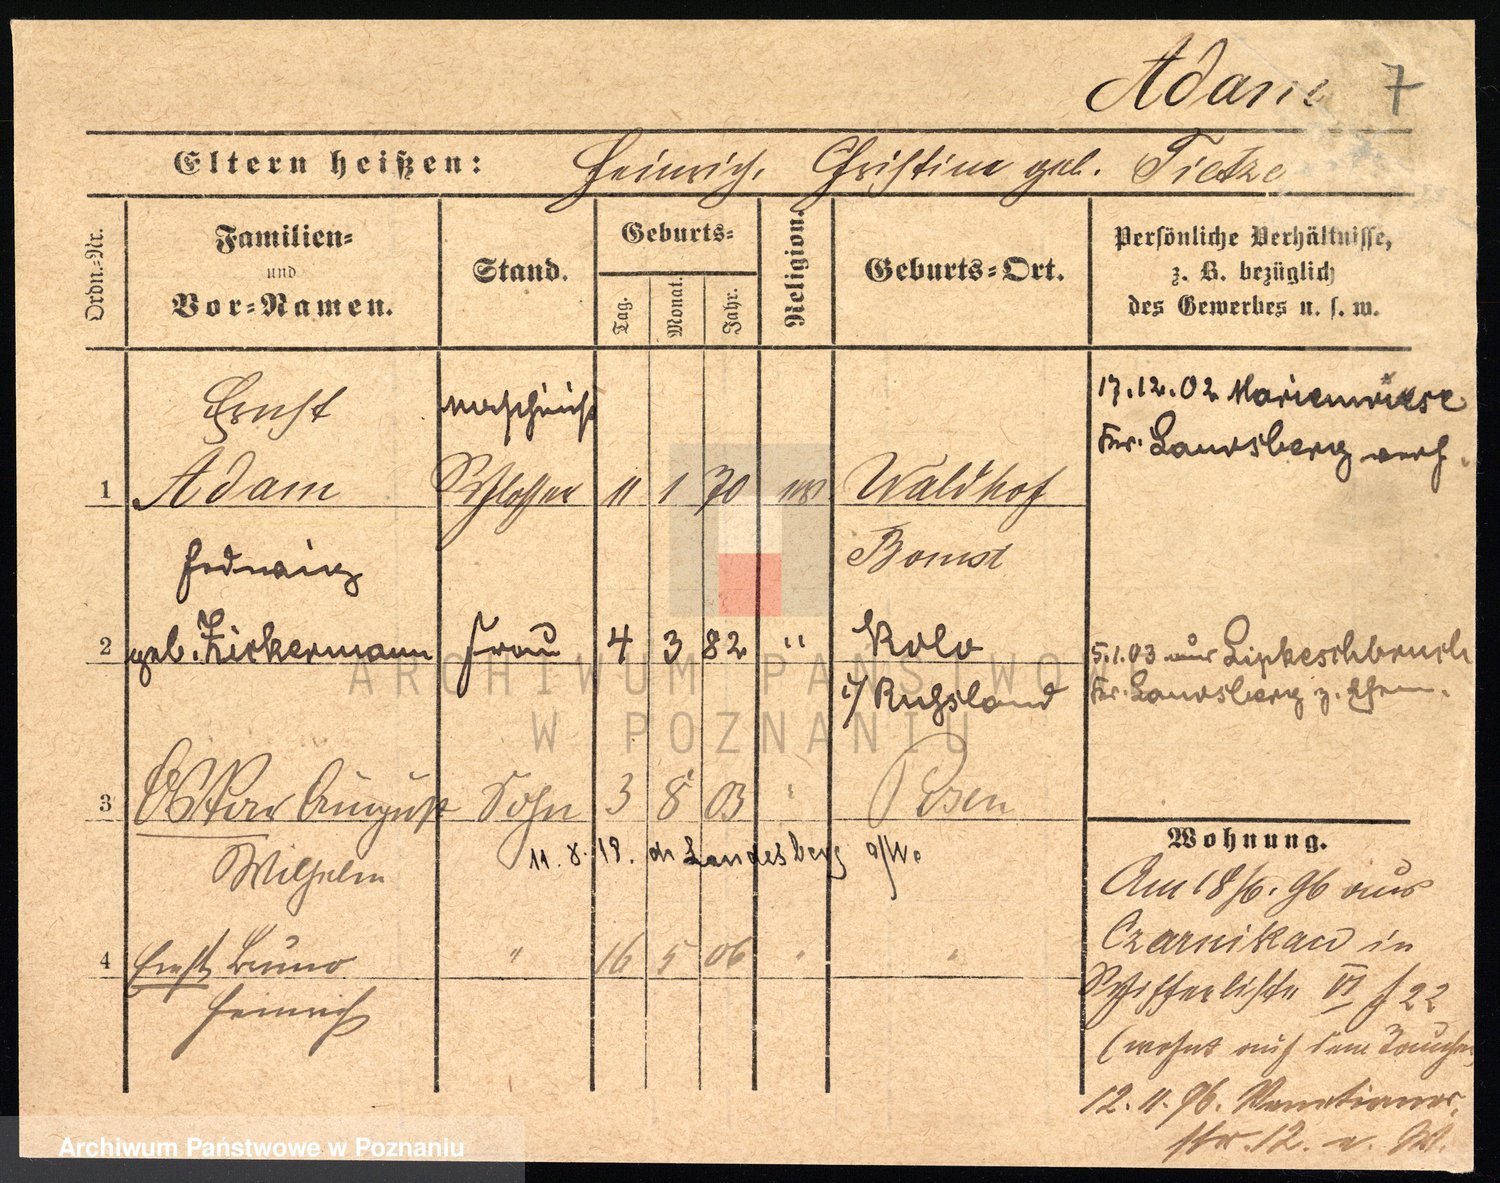 Adam 7
Eltern heißen: Heinrich, Christine geb. Tietze
Ordn.-Nr.
Familien-
und
Vor-Namen.
Stand.
Geburts-
Tag.
Monat.
Jahr.
Religion.
Geburts-Ort.
Persönliche Verhältnisse,
z. B. bezüglich
des Gewerbes u. s. w.
Ernst
17.12.02 Marienwiese
Kr. Landsberg verh.
1 Adam Schlosser 11 1 70 Waldhof
Bomst
Hedwig
2 geb. Zickermann Frau 4 3 82 " Kolo
i/Russland
5.1.03 aus Lipkeschbruch
Kr. Landsberg z. Ehem.
3 Oskar August Sohn 3 8 03 " Posen
Wilhelm
11.8.19. Landesberg a/W.
4 Ernst Bruno " 16 5 06 " "
Heinrich
Wohnung.
Am 18/6. 96 aus
Czarnikau in
Schifferliste VI f 22
(wohnt auf dem
12.11.96. Venetianer
str. 12. a. W.
ARCHIWUM PAŃSTWOWE
W POZNANIU
Archiwum Państwowe w Poznaniu